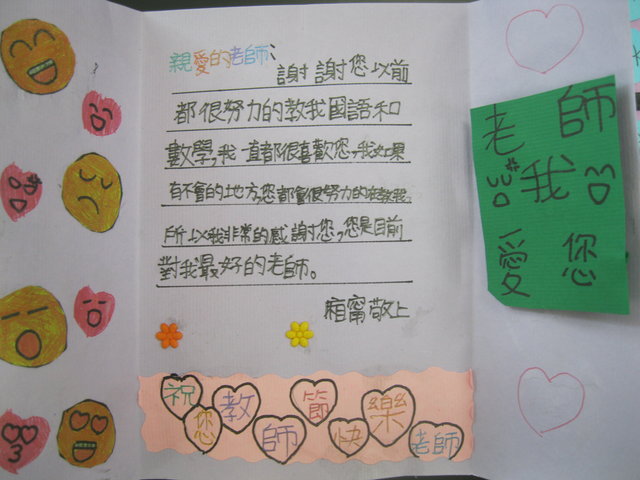 親愛的老師：
謝謝您以前
都很努力的教我國語和
數學，我一直都很喜歡您，我如果
有不會的地方，您都會很努力的在教我，
所以我非常的感謝您，您是目前
對我最好的老師。
甯敬上
老師
我
愛您
祝您教師節快樂老師